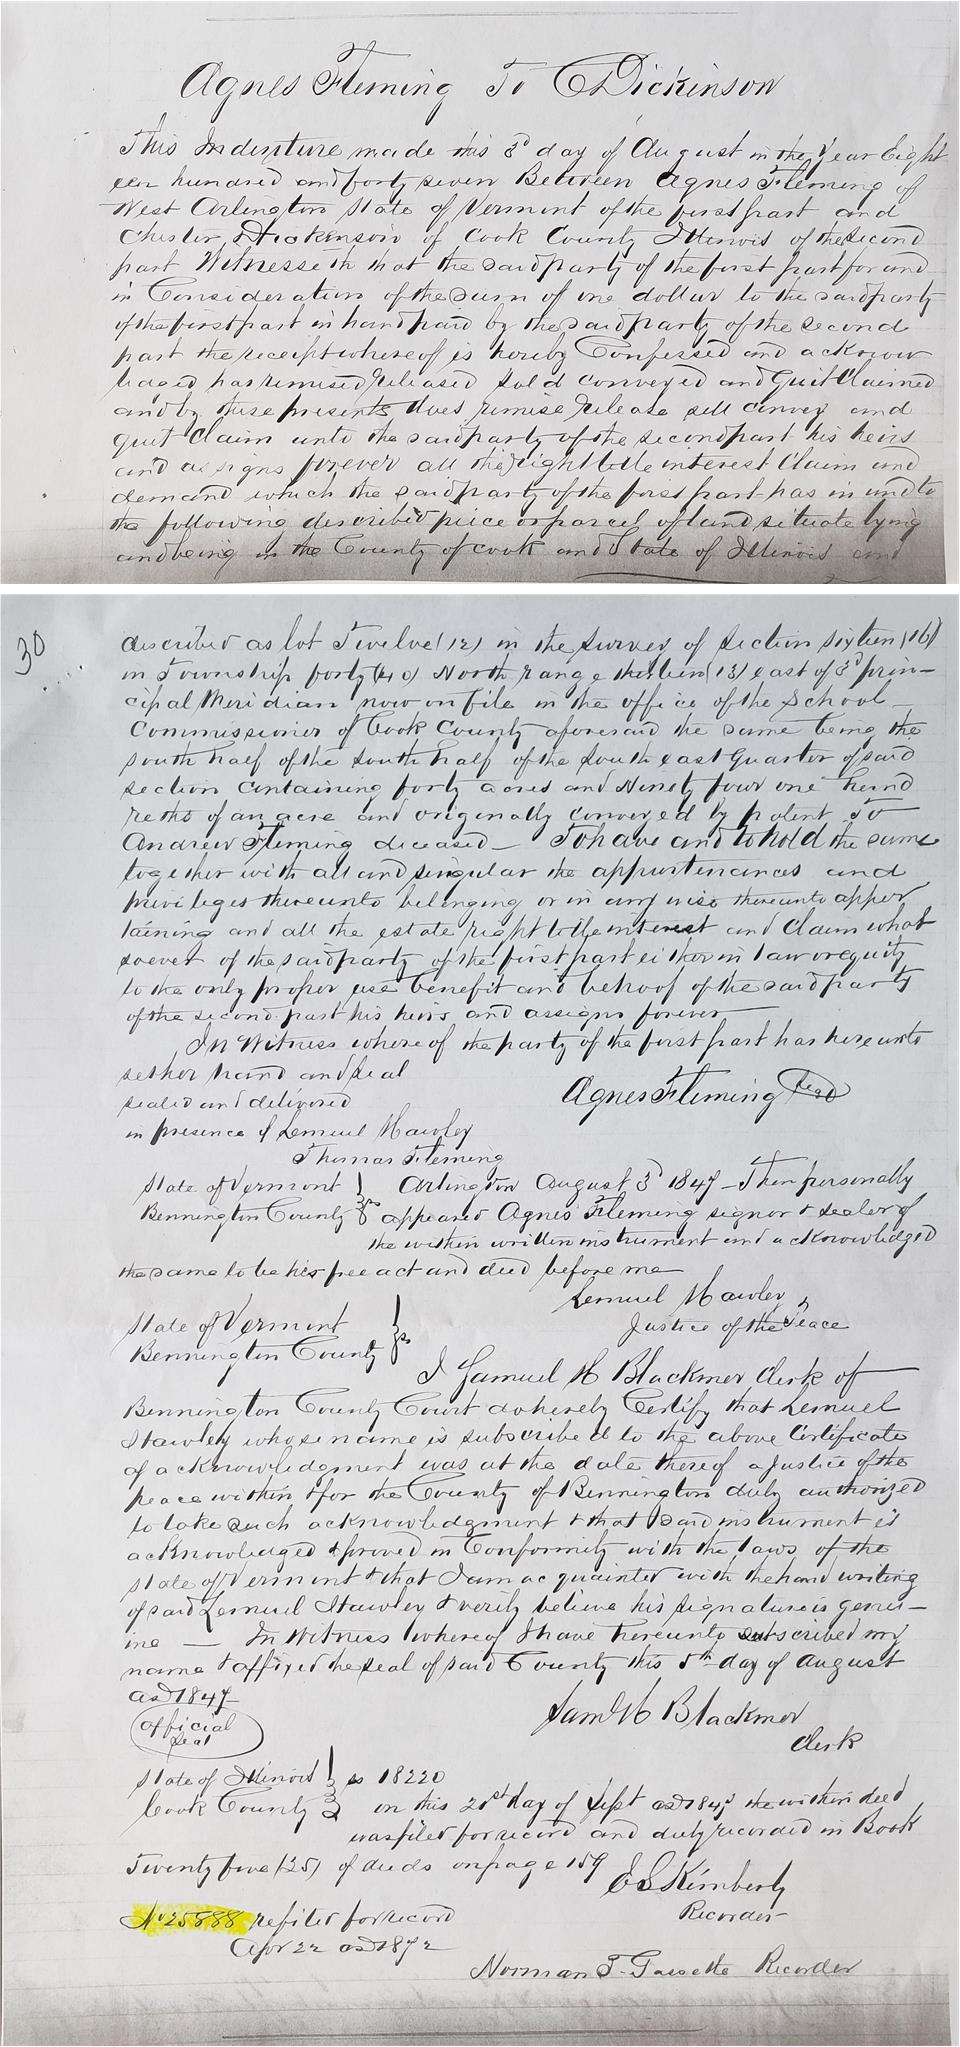 Agnes Fleming To C Dickinson
This Indenture made this 3d day of August in the Year Eight
een hundred and forty seven Between Agnes Fleming of
West Arlington State of Vermont of the first part and
Chester Dickinson of Cook County Illinois of the second
part Witnesseth that the said party of the first part for and
in Consideration of the sum of one dollar to the said party
of the first part in hand paid by the said party of the second
part the receipt whereof is hereby Confessed and acknow
ledged has remised released sold conveyed and Quit Claimed
and by these presents does remise release sell convey and
quit Claim unto the said party of the second part his heirs
and assigns forever all the right title interest Claim and
demand which the said party of the first part has in and to
the following described piece or parcel of land situate lying
and being in the County of Cook and State of Illinois and
30
described as lot Twelve (12) in the survey of Section Sixteen (16)
in Township forty (40) North range thirteen (13) east of 3d prin-
cipal Meridian now on file in the office of the School
Commissioner of Cook County aforesaid the same being the
south half of the south half of the south east Quarter of said
section containing forty acres and Ninety four one hund
reths of an acre and originally conveyed by patent To
Andrew Fleming deceased – To have and to hold the same
together with all and singular the appurtenances and
privileges thereunto belonging or in any wise thereunto apper
taining and all the estate right title interest and Claim what
soever of the said party of the first part either in law or equity
to the only proper use benefit and behoof of the said party
of the second part his heirs and assigns forever
In Witness whereof the party of the first part has hereunto
set her hand and seal
Agnes Fleming Seal
sealed and delivered
in presence of Lemuel Hawley
Thomas Fleming
State of Vermont } Arlington August 3d 1847 – Then personally
Bennington County } ss appeared Agnes Fleming signor & sealer of
the within written instrument and acknowledged
the same to be his free act and deed before me
Lemuel Hawley
Justice of the Peace
State of Vermont
Bennington County } ss
I Samuel H Blackmer Clerk of
Bennington County Court do hereby Certify that Lemuel
Hawley whose name is subscribed to the above Certificate
of acknowledgment was at the date thereof a Justice of the
peace within & for the County of Bennington duly authorized
to take such acknowledgment & that said instrument is
acknowledged & proved in Conformity with the laws of the
State of Vermont & that I am acquainted with the hand writing
of said Lemuel Hawley & verily believe his signature is genu-
ine – In Witness whereof I have hereunto subscribed my
name & affixed the seal of said County this 5th day of August
ad 1847
Saml H Blackmer
Clerk
Official
Seal
State of Illinois } ss 18220
Cook County } on this 21st day of Sept ad 1847 the within deed
was filed for record and duly recorded in Book
Twenty five (25) of deeds on page 159
E S Kimberly
Recorder
No 25888 refiled for record
Apr 22 ad 1872
Norman T. Gassette Recorder